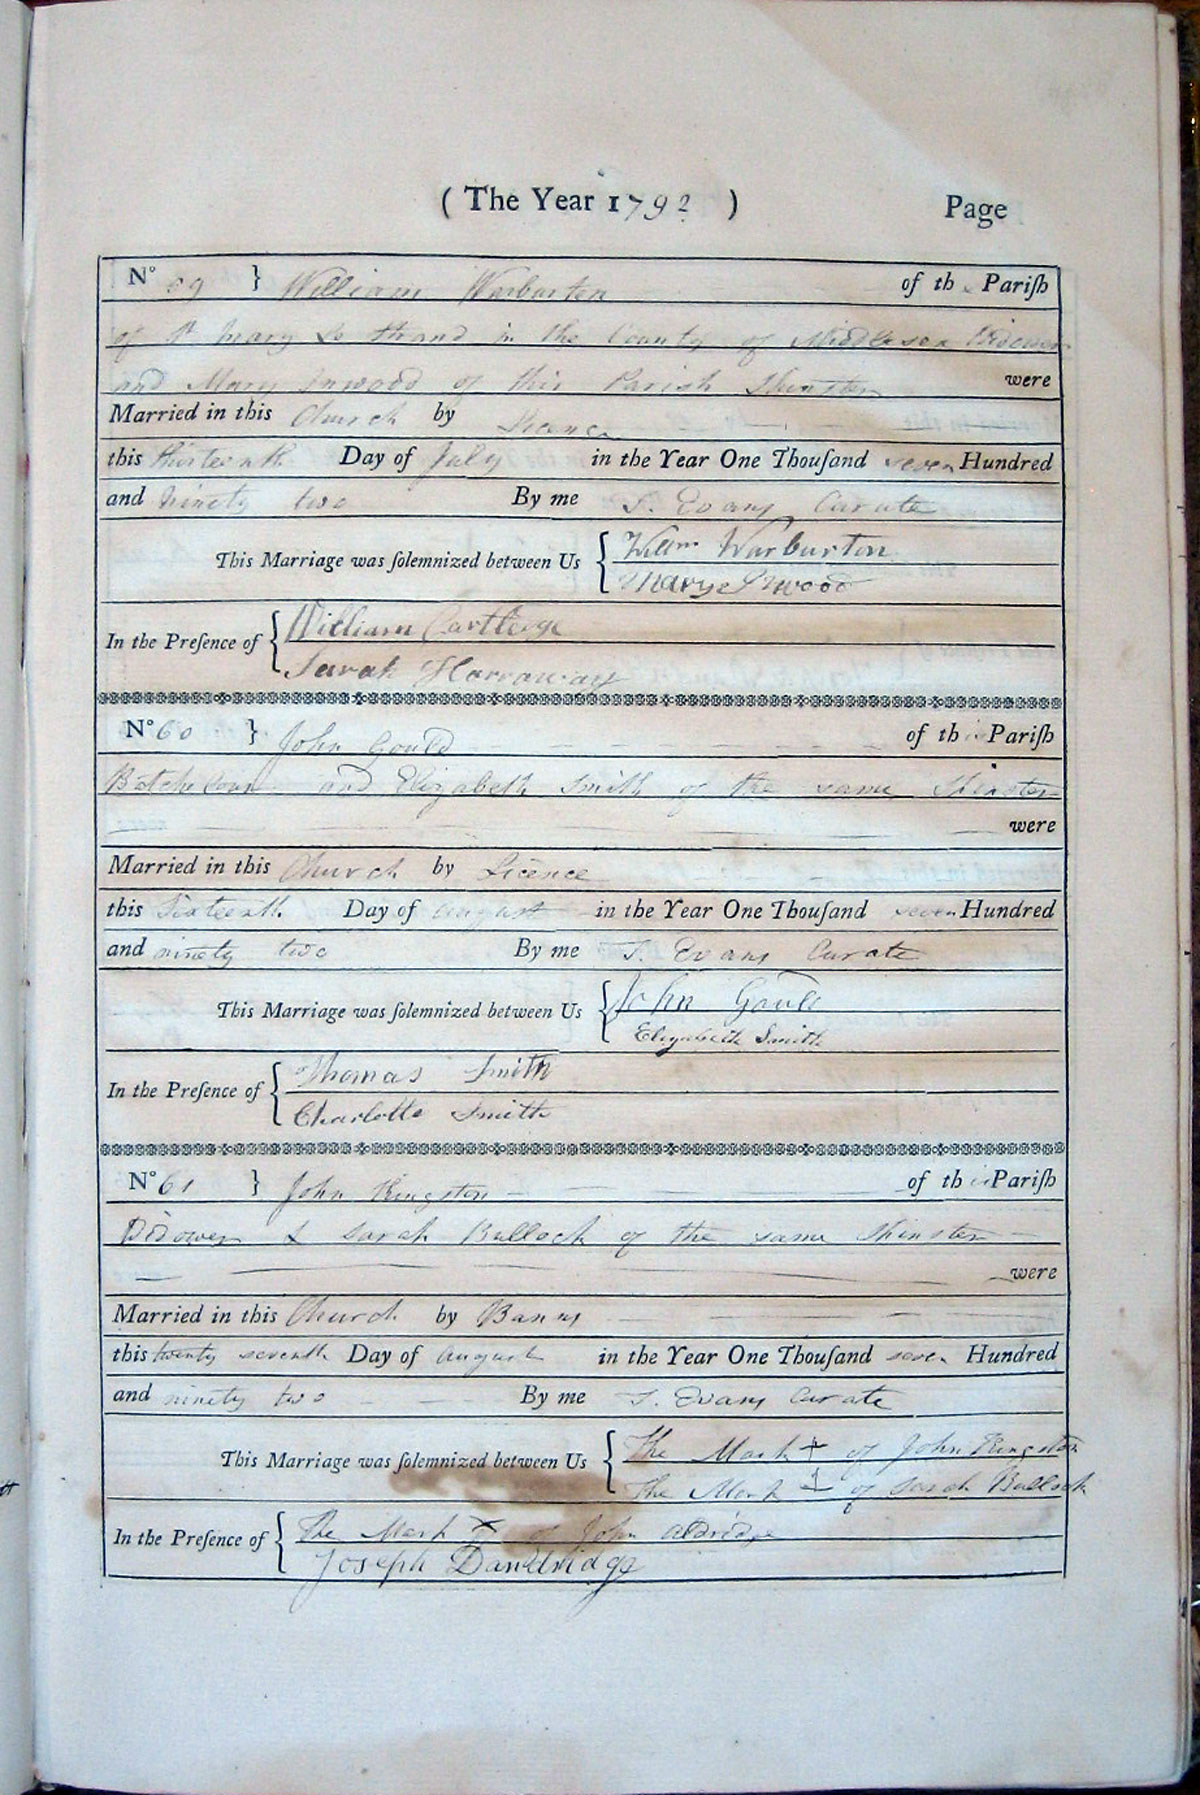 ( The Year 1792 ) Page
No 59 } William Warburton of the Pariſh
of St Mary Le Strand in the County of Middlesex Widower
and Mary Inwood of this Parish Spinster were
Married in this Church by Licence
this thirteenth Day of July in the Year One Thouſand seven Hundred
and ninety two By me T. Evans Curate
This Marriage was ſolemnized between Us { Willm Warburton
Mary Inwood
In the Preſence of { William Cartlerge
Sarah Harraway
No 60 } John Gould of this Pariſh
Batchelour and Elizabeth Smith of the same Spinster
were
Married in this Church by Licence
this Sixteenth Day of august in the Year One Thouſand seven Hundred
and ninety two By me T. Evans Curate
This Marriage was ſolemnized between Us { John Gould
Elizabeth Smith
In the Preſence of { Thomas Smith
Charlotte Smith
No 61 } John Kingston of this Pariſh
Widower & Sarah Bullock of the same Spinster
were
Married in this Church by Banns
this twenty seventh Day of august in the Year One Thouſand seven Hundred
and ninety two By me T. Evans Curate
This Marriage was ſolemnized between Us { The Mark + of John Kingston
The Mark + of Sarah Bullock
In the Preſence of { The Mark X of John aldridge
Joseph Dandridge